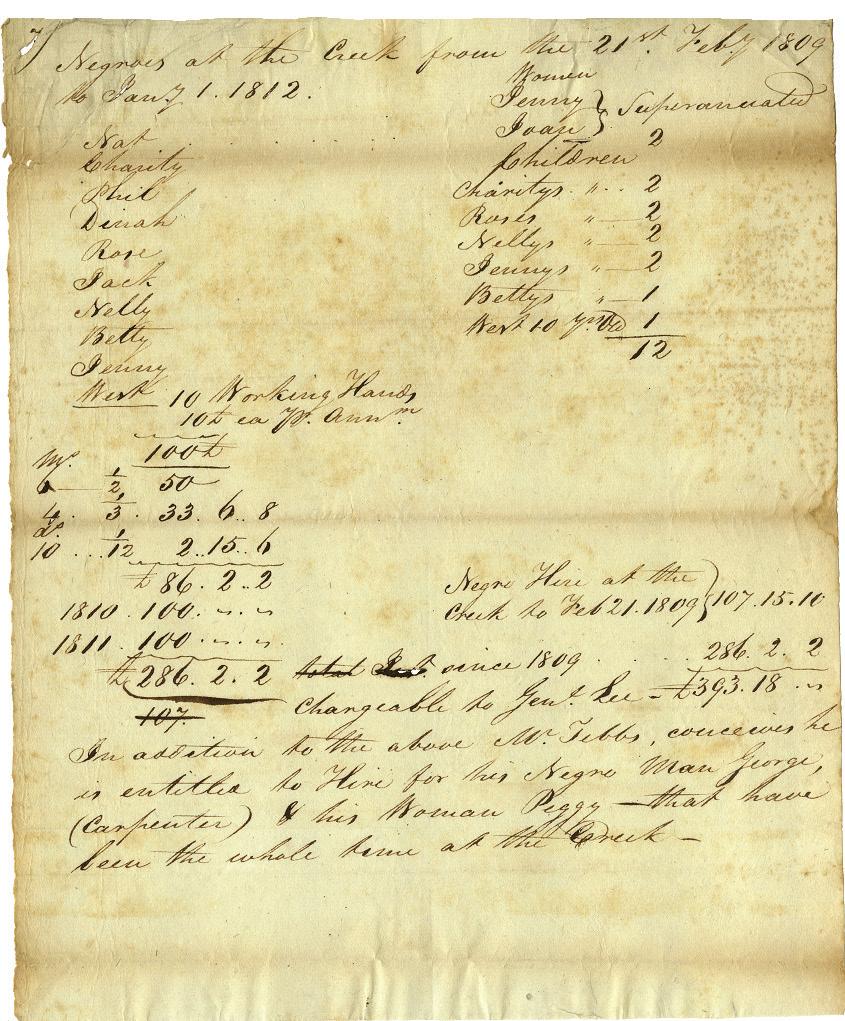 Negroes at the Creek from the 21st. Feby 1809
to Jany 1. 1812.
Nat
Charity
Phil
Dinah
Rose
Jack
Nelly
Betty
Jenny
West 10 Working Hands
10£ ea pr. Annm.
100£
Ms.
6 1/2 50
4 1/3 . 33 . 6 .. 8
ds.
10 ... 1/12 2 .. 15 .. 6
£ 86 . 2 .. 2
1810 . 100 . " . "
1811 . 100 . " . "
£ 286 . 2 . 2
107.
Women
Jenny } Superanuated
Joan } 2
Children
Charitys " .. 2
Roses " — 2
Nellys " — 2
Jennys " — 2
Bettys " — 1
West 10 yrs Old 1
12
Negro Hire at the
Creek to Feb 21. 1809 } 107 . 15 . 10
total since 1809 . . . 286 . 2 . 2
Chargeable to Genl. Lee — £393 . 18 . "
In addition to the above Mr. Tebbs, conceives he
is entitled to Hire for his Negro Man George,
(Carpenter) & his Woman Peggy — that have
been the whole time at the Creek —